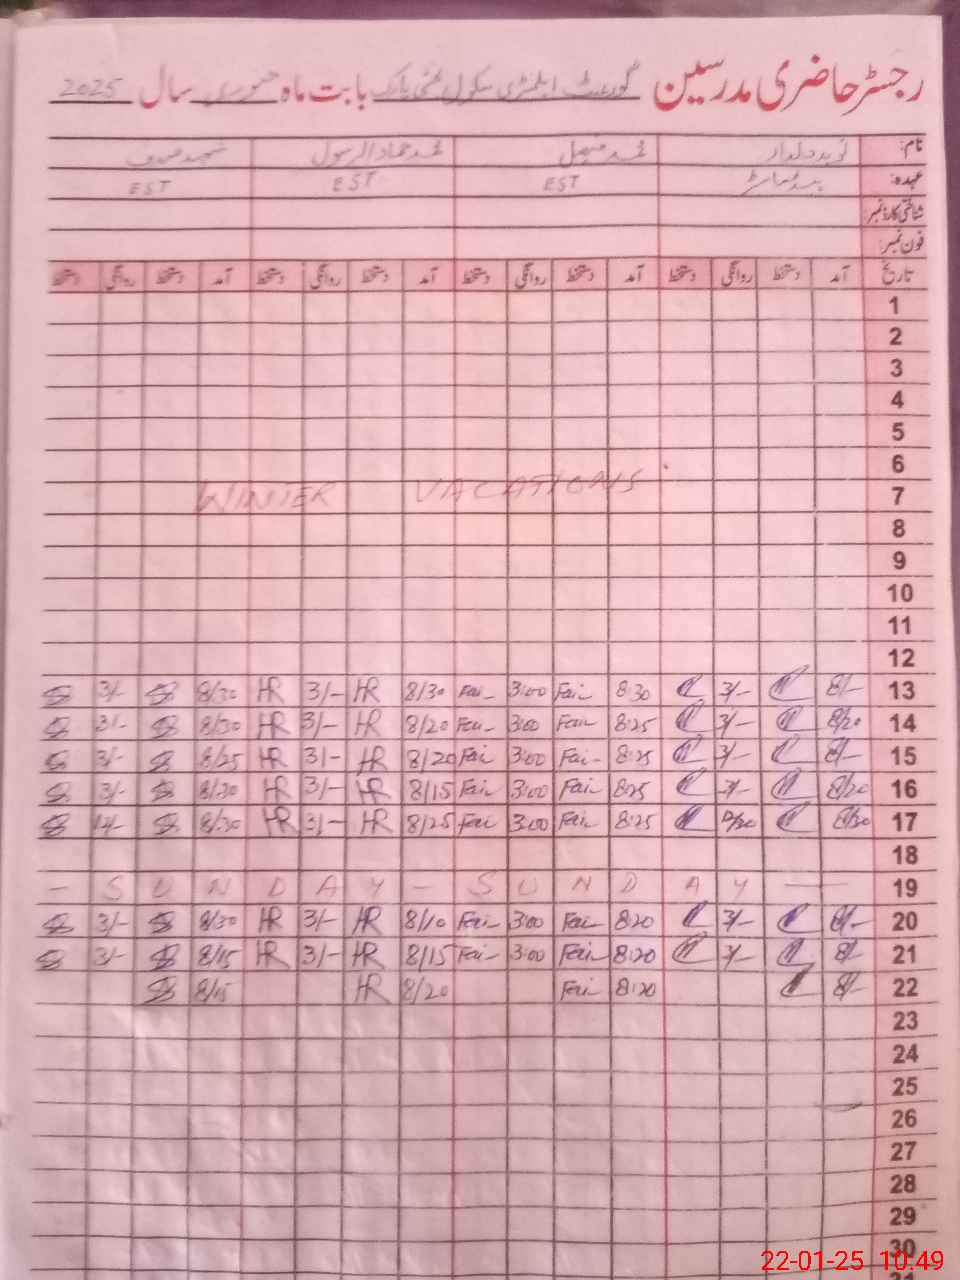 رجسٹر حاضری مدرسین گورنمنٹ ایلمنٹری سکول بابت ماہ جنوری سال 2025
نام: نوید دلدار محمد فیصل محمد حماد الرسول
عہدہ: ہیڈماسٹر EST EST EST
شناختی کارڈ نمبر:
فون نمبر:
تاریخ آمد دستخط روانگی دستخط آمد دستخط روانگی دستخط آمد دستخط روانگی دستخط آمد دستخط روانگی دستخط
1
2
3
4
5
6
WINTER VACATIONS
7
8
9
10
11
12
3/- 8/30 HR 3/- HR 8/30 Fai 3:00 Fai 8:30 3/- 8/- 13
3/- 8/30 HR 3/- HR 8/20 Fai 3:00 Fai 8:25 3/- 8/20 14
3/- 8/25 HR 3/- HR 8/20 Fai 3:00 Fai 8:25 3/- 8/- 15
3/- 8/30 HR 3/- HR 8/15 Fai 3:00 Fai 8:25 3/- 8/20 16
8/30 HR 3/- HR 8/25 Fai 3:00 Fai 8:25 8/30 17
18
- S U N D A Y - S U N D A Y - 19
3/- 8/30 HR 3/- HR 8/10 Fai 3:00 Fai 8:20 3/- 8/- 20
3/- 8/15 HR 3/- HR 8/15 Fai 3:00 Fai 8:20 3/- 8/- 21
8/15 HR 8/20 Fai 8:20 8/- 22
23
24
25
26
27
28
29
30
22-01-25 10:49